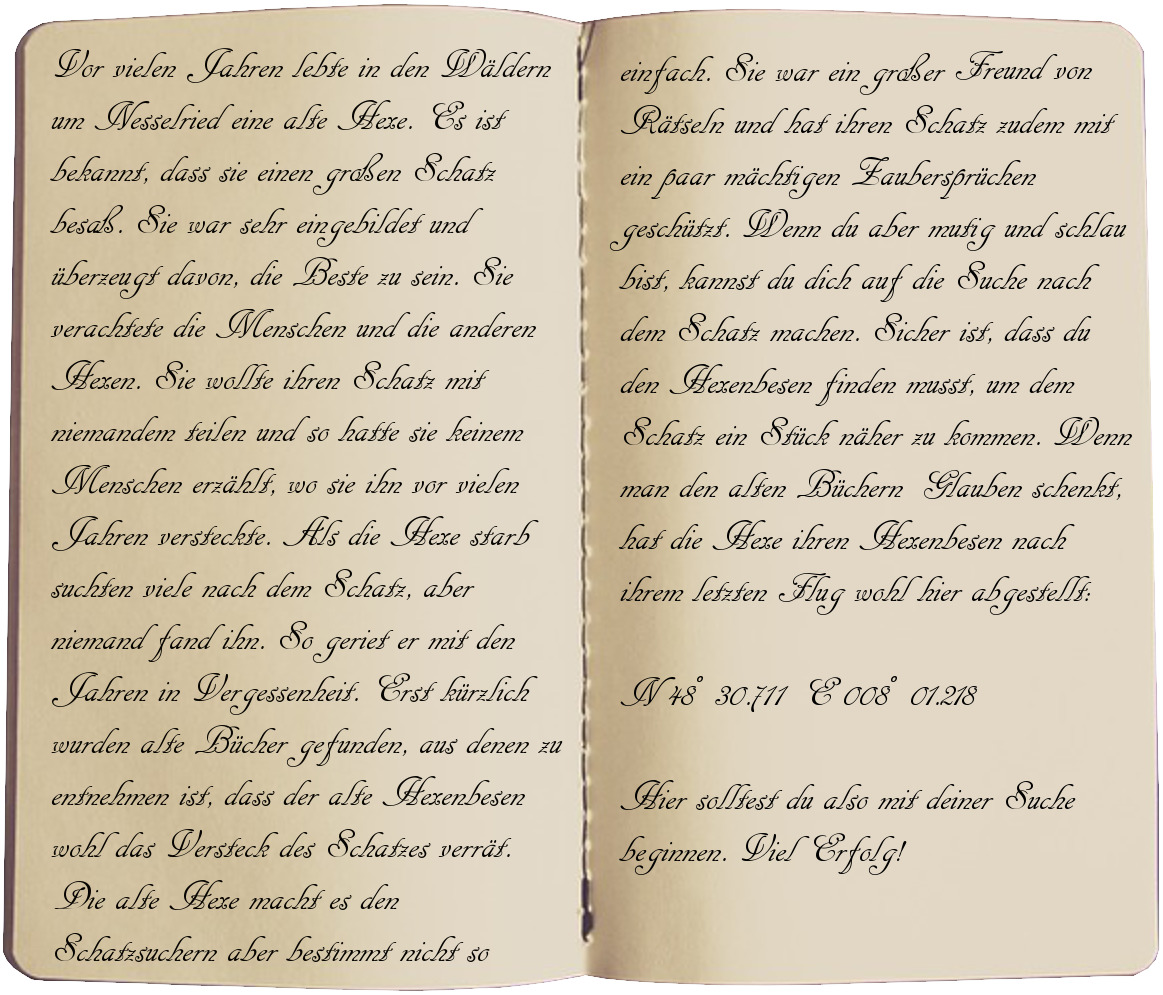 Vor vielen Jahren lebte in den Wäldern
um Nesselried eine alte Hexe. Es ist
bekannt, dass sie einen großen Schatz
besaß. Sie war sehr eingebildet und
überzeugt davon, die Beste zu sein. Sie
verachtete die Menschen und die anderen
Hexen. Sie wollte ihren Schatz mit
niemandem teilen und so hatte sie keinem
Menschen erzählt, wo sie ihn vor vielen
Jahren versteckte. Als die Hexe starb
suchten viele nach dem Schatz, aber
niemand fand ihn. So geriet er mit den
Jahren in Vergessenheit. Erst kürzlich
wurden alte Bücher gefunden, aus denen zu
entnehmen ist, dass der alte Hexenbesen
wohl das Versteck des Schatzes verrät.
Die alte Hexe macht es den
Schatzsuchern aber bestimmt nicht so
einfach. Sie war ein großer Freund von
Rätseln und hat ihren Schatz zudem mit
ein paar mächtigen Zaubersprüchen
geschützt. Wenn du aber mutig und schlau
bist, kannst du dich auf die Suche nach
dem Schatz machen. Sicher ist, dass du
den Hexenbesen finden musst, um dem
Schatz ein Stück näher zu kommen. Wenn
man den alten Büchern Glauben schenkt,
hat die Hexe ihren Hexenbesen nach
ihrem letzten Flug wohl hier abgestellt:
N 48° 30.711 E 008° 01.218
Hier solltest du also mit deiner Suche
beginnen. Viel Erfolg!